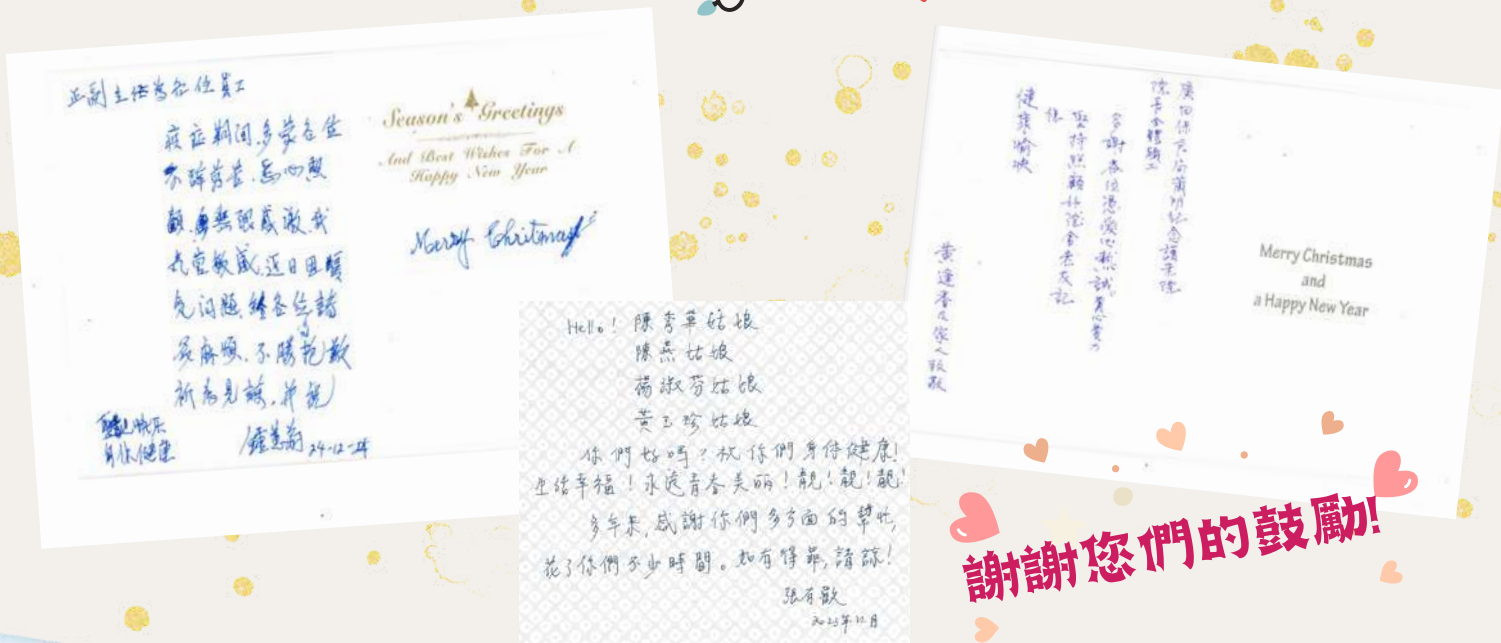 正副主任為各位員工
疫症期间,多蒙各位
不辞劳苦,悉心照
顧,
敏感,近日因
問題,各位
麻煩,不勝抱歉
祈為見諒,并祝
聖旦快乐
身体健康
24-12-24
Season's Greetings
And Best Wishes For A
Happy New Year
Merry Chritmas
Hello! 陳秀華姑娘
陳燕姑娘
楊淑芬姑娘
黃玉珍姑娘
你們好嗎?祝你們身体健康!
生活幸福!永遠青春美丽!靚!靚!靚!
多年来,感謝你們多方面的幫忙,
花了你們不少時間。如有得罪,請諒!
張有歡
2023年12月
院長全體職工
多謝各位憑愛心熱誠,
堅持照顧
健康愉快
黃蓮香及家人致敬
Merry Christmas
and
a Happy New Year
謝謝您們的鼓勵!